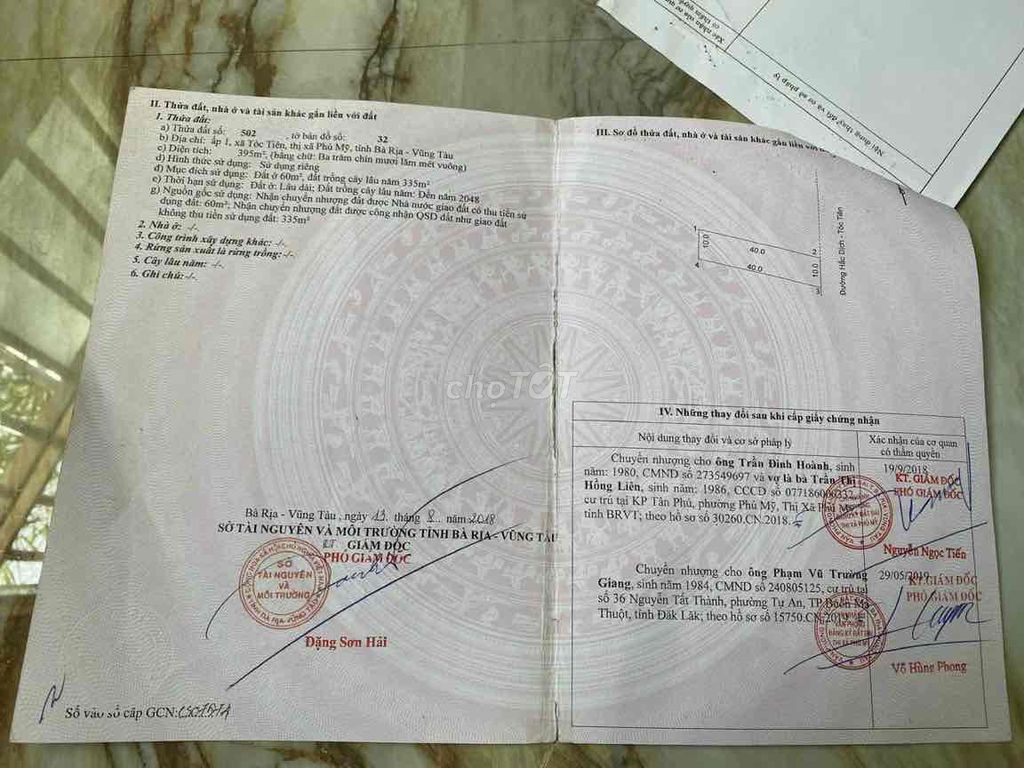 II. Thửa đất, nhà ở và tài sản khác gắn liền với đất
1. Thửa đất:
a) Thửa đất số: 502 , tờ bản đồ số: 32
b) Địa chỉ: ấp 1, xã Tóc Tiên, thị xã Phú Mỹ, tỉnh Bà Rịa - Vũng Tàu
c) Diện tích: 395m², (bằng chữ: Ba trăm chín mươi lăm mét vuông)
d) Hình thức sử dụng: Sử dụng riêng
đ) Mục đích sử dụng: Đất ở 60m², đất trồng cây lâu năm 335m²
e) Thời hạn sử dụng: Đất ở: Lâu dài; Đất trồng cây lâu năm: Đến năm 2048
g) Nguồn gốc sử dụng: Nhận chuyển nhượng đất được Nhà nước giao đất có thu tiền sử
dụng đất: 60m²; Nhận chuyển nhượng đất được công nhận QSD đất như giao đất
không thu tiền sử dụng đất: 335m²
2. Nhà ở: -/-
3. Công trình xây dựng khác: -/-
4. Rừng sản xuất là rừng trồng:-/-
5. Cây lâu năm: -/-
6. Ghi chú:-/-
Bà Rịa - Vũng Tàu , ngày 13 tháng 8 năm 2018
SỞ TÀI NGUYÊN VÀ MÔI TRƯỜNG TỈNH BÀ RỊA - VŨNG TÀU
KT GIÁM ĐỐC
PHÓ GIÁM ĐỐC
SỞ
TÀI NGUYÊN
VÀ
MÔI TRƯỜNG
Đặng Sơn Hải
Số vào sổ cấp GCN:
III. Sơ đồ thửa đất, nhà ở và tài sản khác gắn liền với
1
10.0
40.0
2
4
40.0
10.0
3
Đường Hắc Dịch - Tóc Tiên
choTỐT
IV. Những thay đổi sau khi cấp giấy chứng nhận
Nội dung thay đổi và cơ sở pháp lý
Xác nhận của cơ quan
có thẩm quyền
Chuyển nhượng cho ông Trần Đình Hoành, sinh
năm: 1980, CMND số 273549697 và vợ là bà Trần Thị
Hồng Liên, sinh năm: 1986, CCCD số 077186000332,
cư trú tại KP Tân Phú, phường Phú Mỹ, Thị Xã Phú Mỹ
tỉnh BRVT; theo hồ sơ số 30260.CN.2018.
19/9/2018
KT. GIÁM ĐỐC
PHÓ GIÁM ĐỐC
Nguyễn Ngọc Tiến
Chuyển nhượng cho ông Phạm Vũ Trường
Giang, sinh năm 1984, CMND số 240805125, cư trú tại
số 36 Nguyễn Tất Thành, phường Tự An, TP Buôn Ma
Thuột, tỉnh Đăk Lăk; theo hồ sơ số 15750.CN.2019
29/05/2019
KT.GIÁM ĐỐC
PHÓ GIÁM ĐỐC
VĂN PHÒNG
ĐĂNG KÝ ĐẤT ĐAI
THỊ XÃ PHÚ MỸ
Võ Hùng Phong
Nội dung thay đổi và cơ sở pháp lý